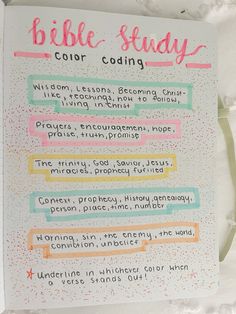 bible Study
color coding
Wisdom, Lessons, Becoming Christ-
like, teachings, how to follow,
living in Christ
Prayers, encouragement, hope,
praise, truth, promise
The trinity, God, Savior, Jesus,
miracles, prophecy fulfilled
Context, prophecy, History, genealogy,
person, place, time, number
Warning, sin, the enemy, the world,
conviction, unbelief
* Underline in whichever color when
a verse stands out!